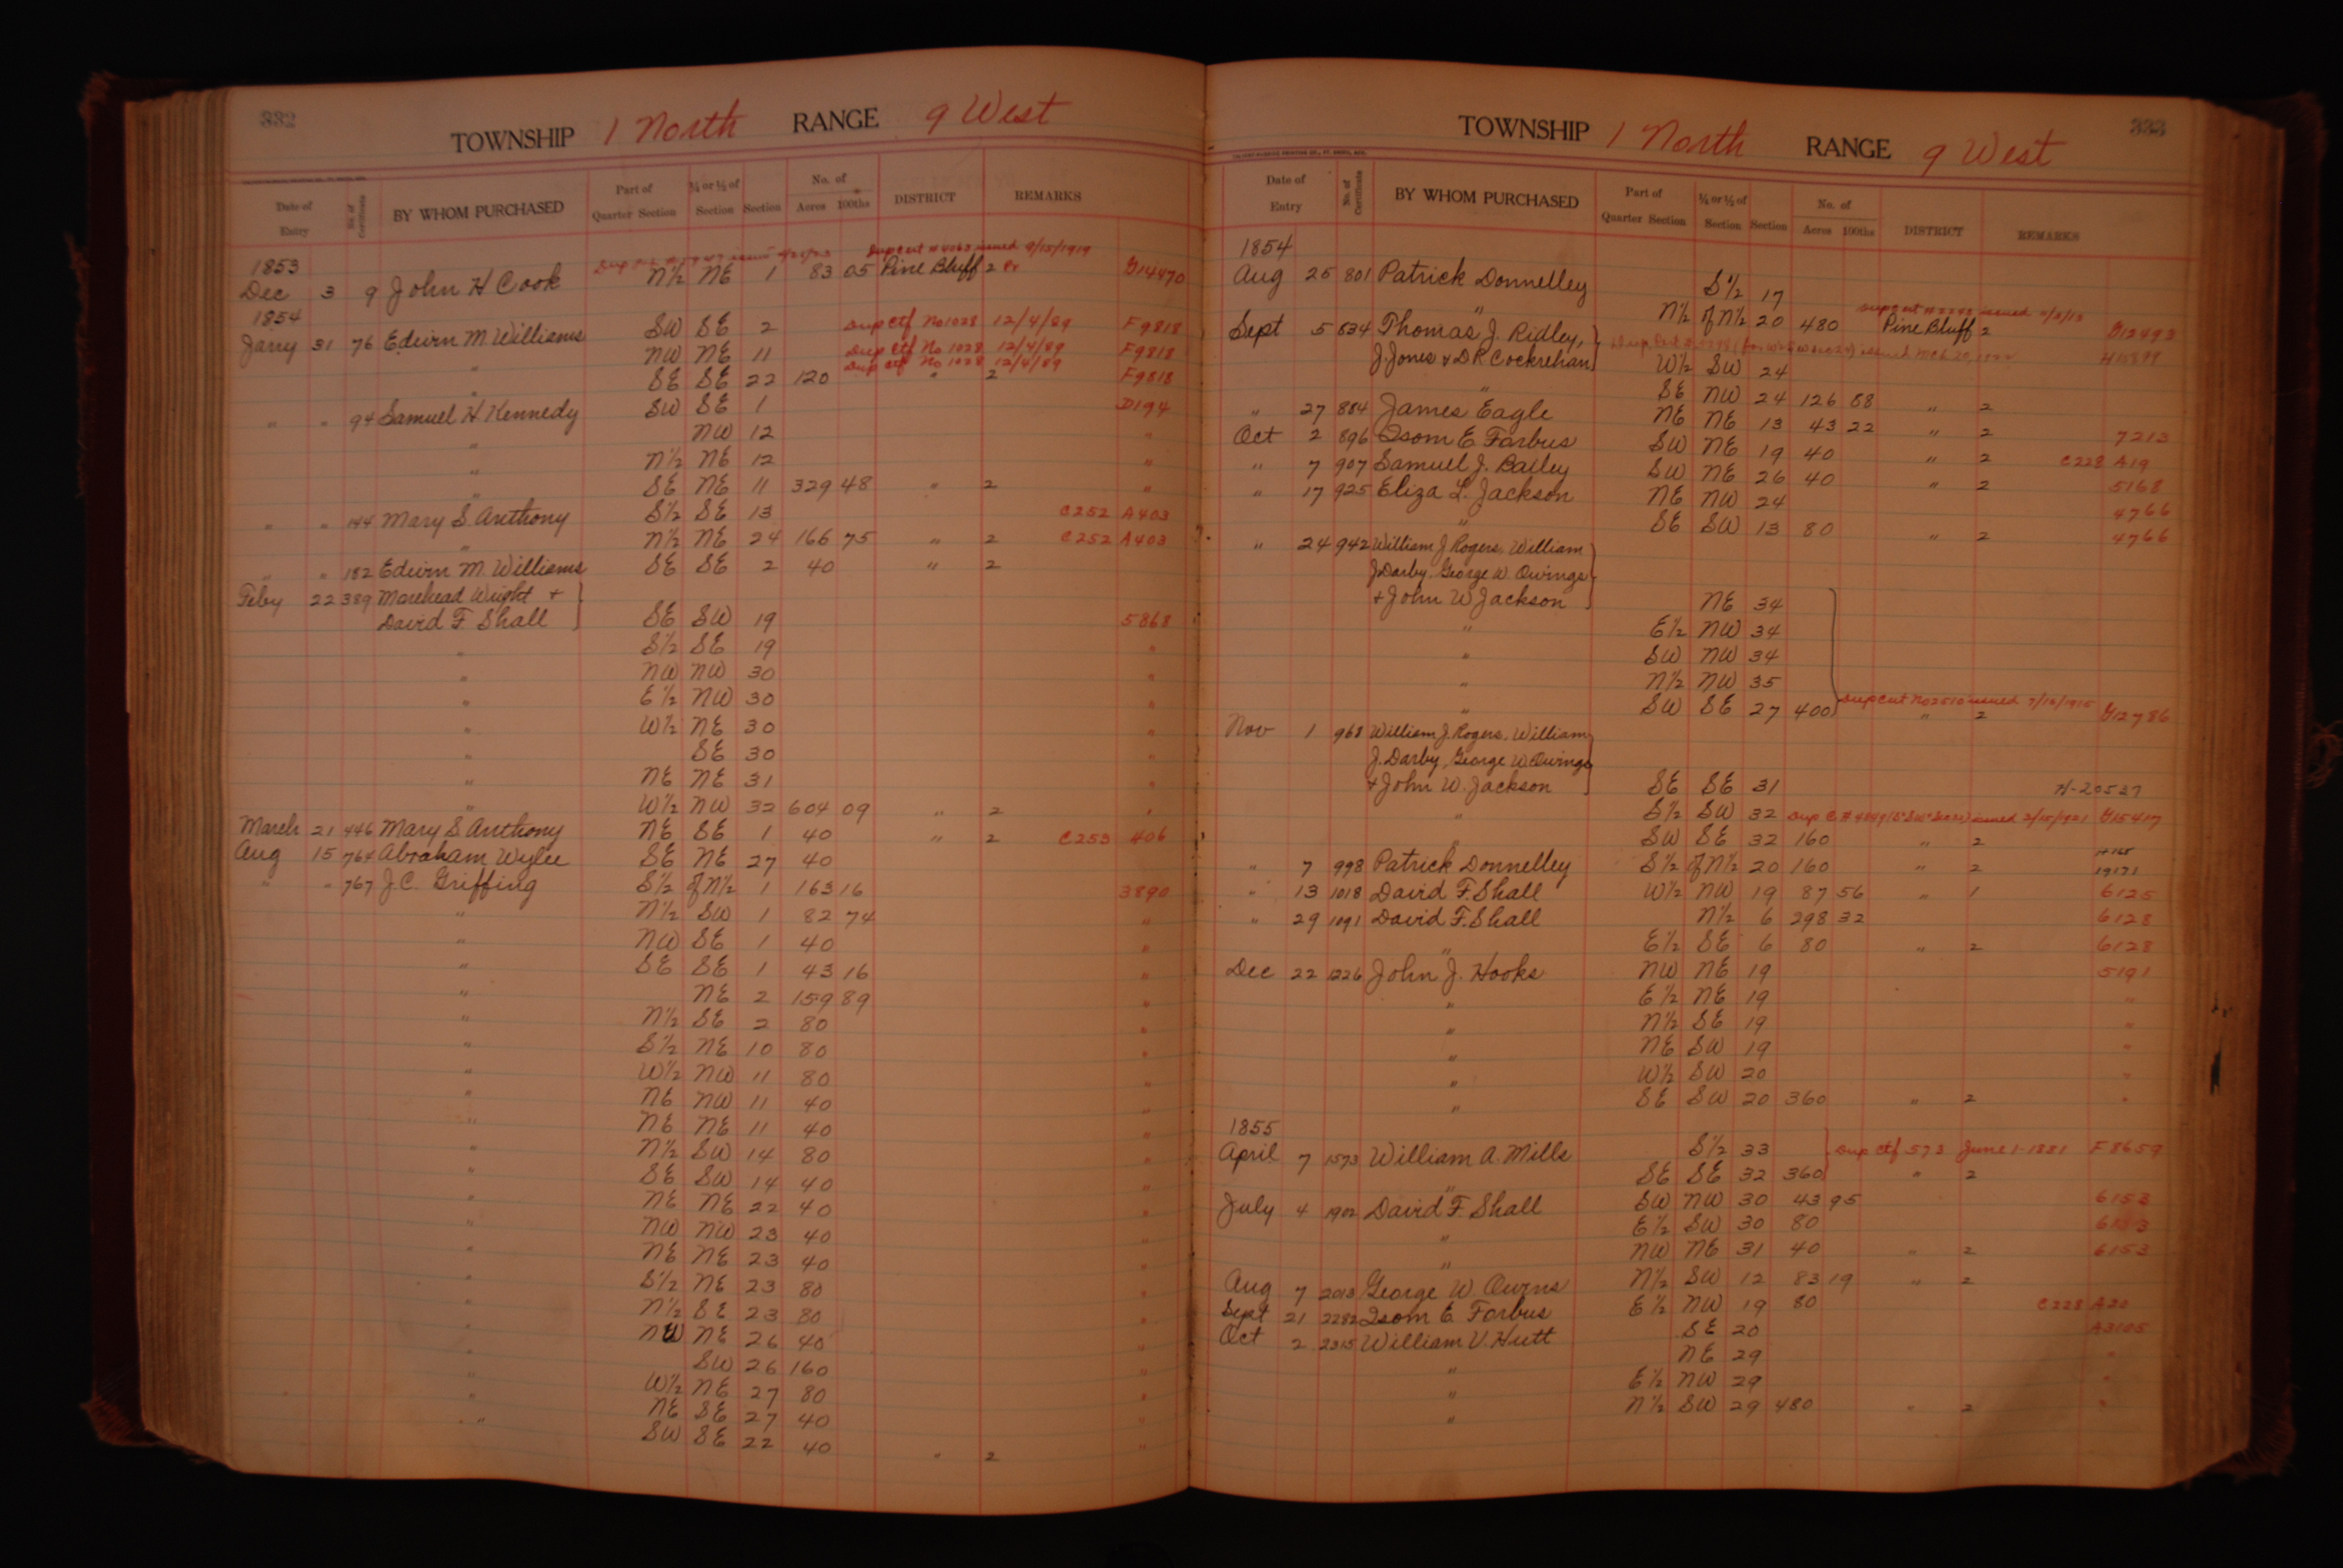 332
TOWNSHIP 1 North RANGE 9 West
Date of Entry No. of Certificate BY WHOM PURCHASED Part of Quarter Section ¼ or ½ of Section Section No. of Acres 100ths DISTRICT REMARKS
Sup cert # 4063 issued 9/15/1919
1853
Dec 3 9 John H Cook N½ NE 1 83 05 Pine Bluff 2 G14470
1854
Jany 31 76 Edwin M Williams SW SE 2 Sup ctf No 1028 12/4/89 F9818
" NW NE 11 Sup Ctf No 1028 12/4/89 F9818
" SE SE 22 120 Sup ctf No 1028 12/4/89 " 2 F9818
" " 94 Samuel H. Kennedy SW SE 1 D194
" NW 12 "
" N½ NE 12 "
" SE NE 11 329 48 " 2 "
" " 144 Mary S. Anthony S½ SE 13 C252 A403
" N½ NE 24 166 75 " 2 C252 A403
" " 182 Edwin M. Williams SE SE 2 40 " 2
Feby 22 389 Morehead Wright +
David F. Shall SE SW 19 5868
" S½ SE 19 "
" NW NW 30 "
" E½ NW 30 "
" W½ NE 30 "
" SE 30 "
" NE NE 31 "
" W½ NW 32 604 09 " 2 "
March 21 446 Mary S Anthony NE SE 1 40 " 2 C253 406
Aug 15 764 Abraham Wylie SE NE 27 40
" " 767 J.C. Griffing S½ of N½ 1 163 16 3890
" N½ SW 1 82 74 "
" NW SE 1 40 "
" SE SE 1 43 16 "
" NE 2 159 89 "
" N½ SE 2 80 "
" S½ NE 10 80 "
" W½ NW 11 80 "
" NE NW 11 40 "
" NE NE 11 40 "
" N½ SW 14 80 "
" SE SW 14 40 "
" NE NE 22 40 "
" NW NW 23 40 "
" NE NE 23 40 "
" S½ NE 23 80 "
" N½ SE 23 80 "
" NW NE 26 40 "
" SW 26 160 "
" W½ NE 27 80 "
" NE SE 27 40 "
" SW SE 22 40 " 2 "
333
TOWNSHIP 1 North RANGE 9 West
Date of Entry No. of Certificate BY WHOM PURCHASED Part of Quarter Section ¼ or ½ of Section Section No. of Acres 100ths DISTRICT REMARKS
1854
Aug 25 801 Patrick Donnelley S½ 17
" N½ of N½ 20 480 Pine Bluff 2 G12493
Sept 5 834 Thomas J. Ridley,
J. Jones & D R Cockrehan W½ SW 24
" SE NW 24 126 88 " 2
" 27 884 James Eagle NE NE 13 43 22 " 2 7213
Oct 2 896 Isom E Forbus SW NE 19 40 " 2 C228 A19
" 7 907 Samuel J. Bailey SW NE 26 40 " 2 5168
" 17 925 Eliza L. Jackson NE NW 24 4766
" SE SW 13 80 " 2 4766
" 24 942 William J Rogers, William
J Darby, George W. Owings
+ John W Jackson NE 34
" E½ NW 34
" SW NW 34
" N½ NW 35
" SW SE 27 400 Sup cert No 2510 issued 7/10/1915 " 2 G12786
Nov 1 968 William J. Rogers, William
J. Darby, George W. Owings
+ John W. Jackson SE SE 31 H-20537
" S½ SW 32 G15417
" SW SE 32 160 " 2
" 7 998 Patrick Donnelley S½ of N½ 20 160 " 2 19171
" 13 1018 David F. Shall W½ NW 19 87 56 " 1 6125
" 29 1091 David F. Shall N½ 6 298 32 6128
" E½ SE 6 80 " 2 6128
Dec 22 1226 John J. Hooks NW NE 19 5191
" E½ NE 19 "
" N½ SE 19 "
" NE SW 19 "
" W½ SW 20 "
" SE SW 20 360 " 2 "
1855
April 7 1573 William A. Mills S½ 33 Sup ctf 573 June 1-1881 F8659
" SE SE 32 360 " 2
July 4 1902 David F Shall SW NW 30 43 95 6153
" E½ SW 30 80 6153
" NW NE 31 40 " 2 6153
Aug 7 2013 George W. Owens N½ SW 12 83 19 " 2
Sept 21 2282 Isom E Forbus E½ NW 19 80 C228 A20
Oct 2 2315 William V. Hutt SE 20 A3105
" NE 29 "
" E½ NW 29 "
" N½ SW 29 480 " 2 "